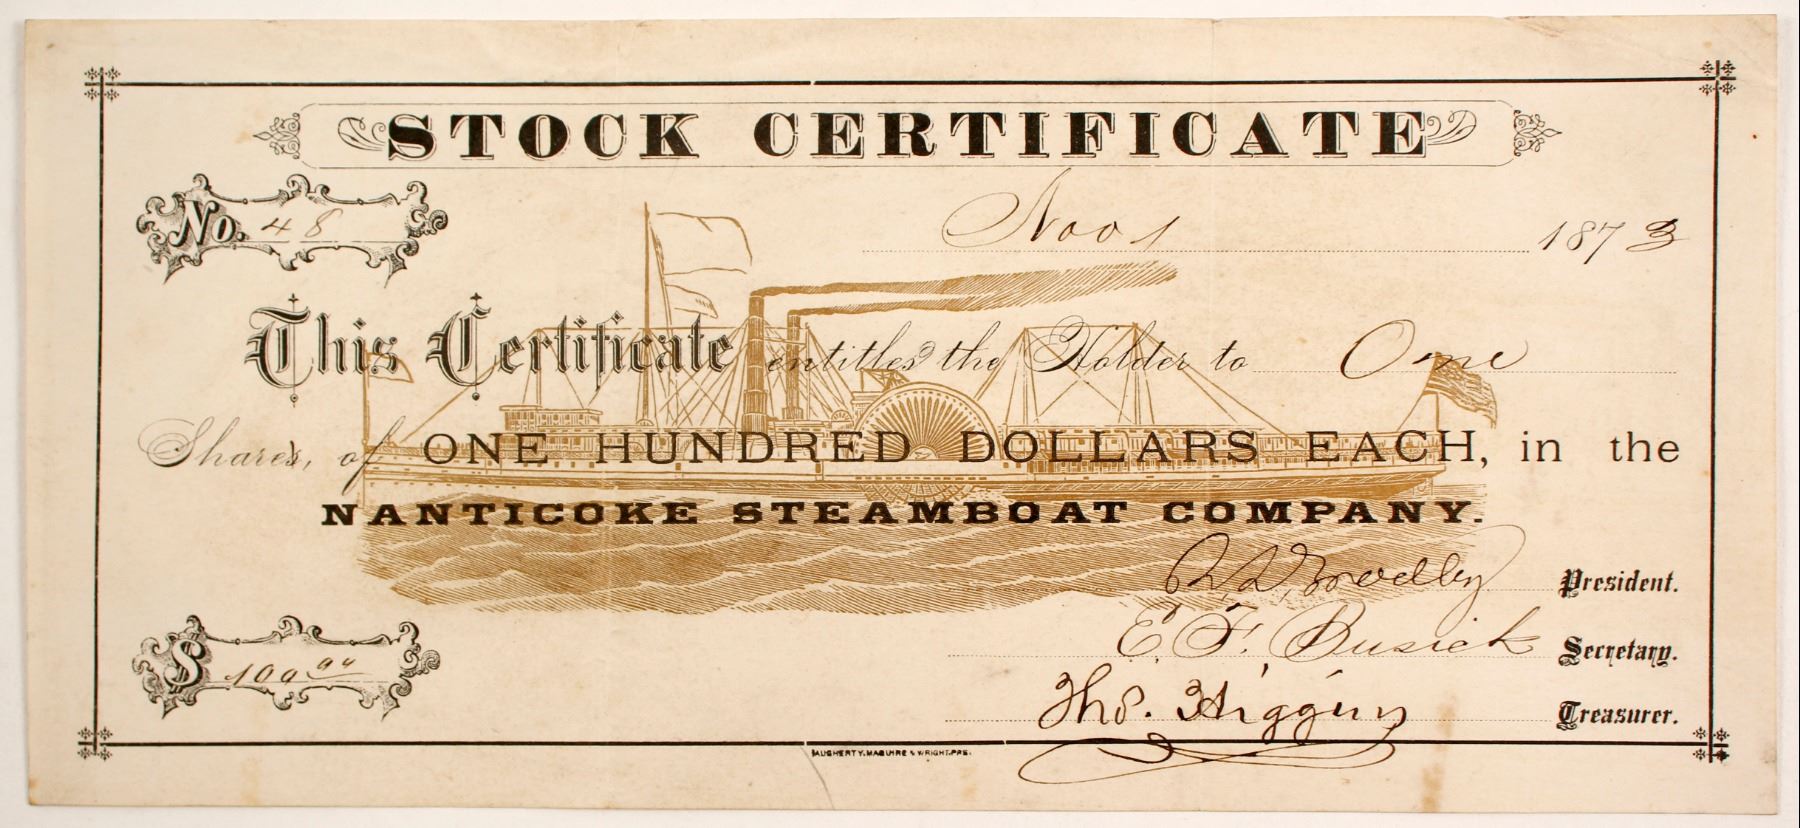 STOCK CERTIFICATE
No. 48
Nov 1 1873
This Certificate entitles the Holder to One
Shares, of ONE HUNDRED DOLLARS EACH, in the
NANTICOKE STEAMBOAT COMPANY.
President.
E. F. Busick Secretary.
$ 100 00
Thos. Higgins Treasurer.
DAUGHERTY, MAGUIRE & WRIGHT, PRS.